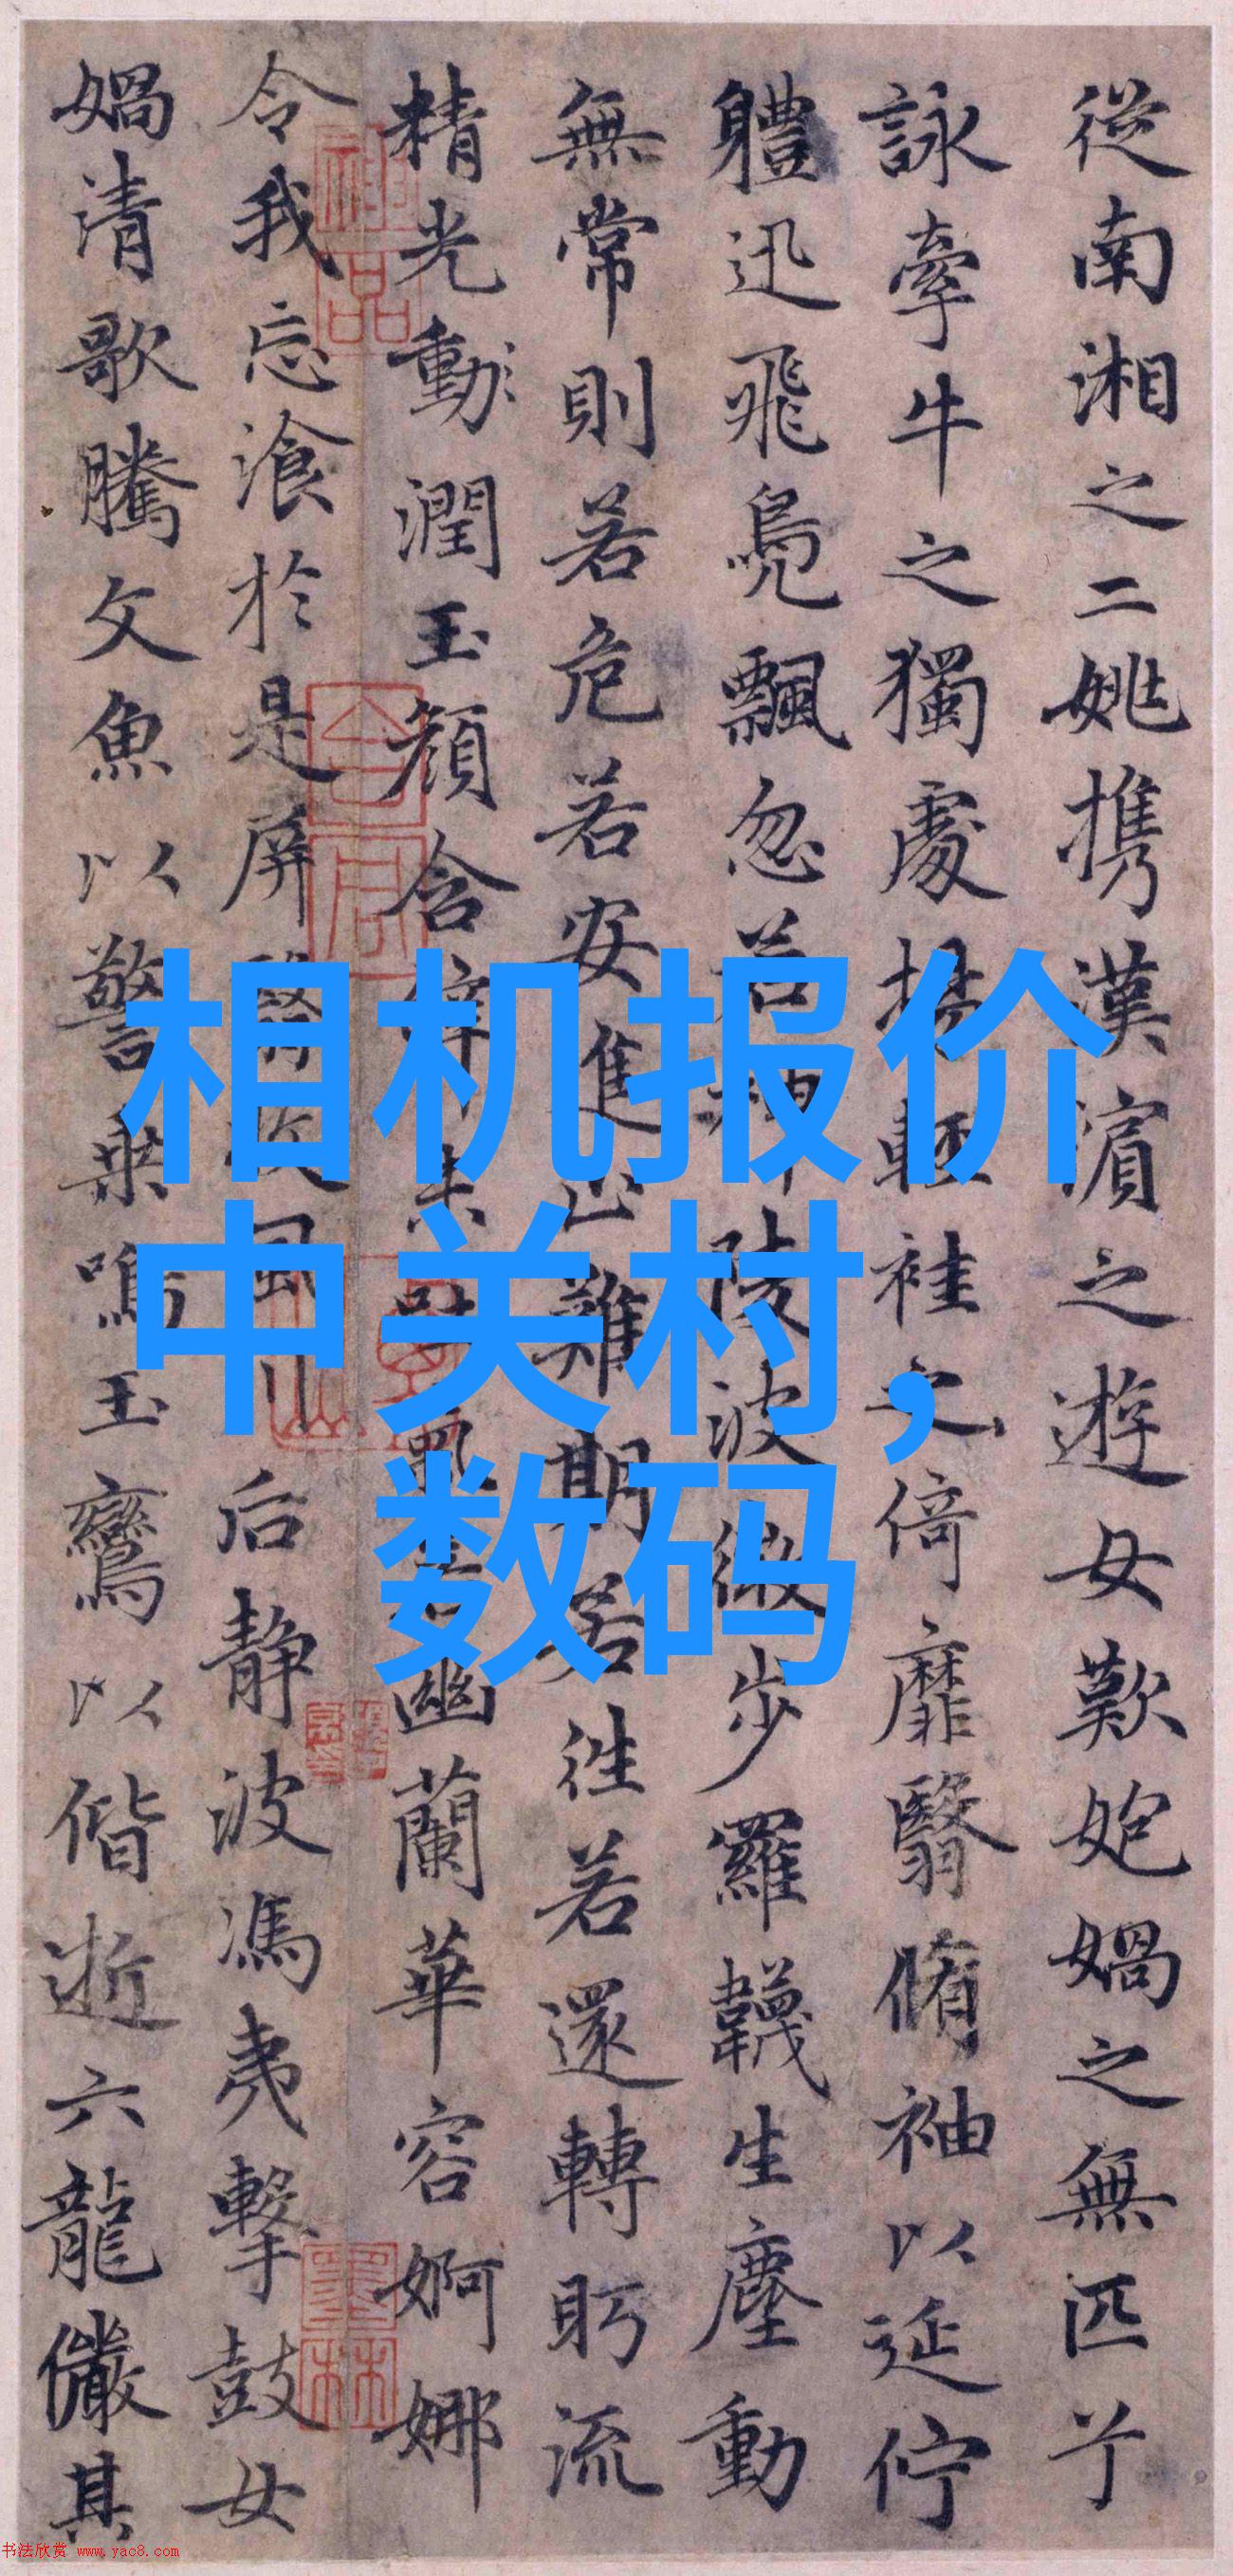 從南湘之二姚携漢濱之遊女歎媧之無匹兮
詠牽牛之獨處揚輕袿之倚靡翳脩袖以延佇
體迅飛鳧飄忽若神陵波微步羅韈生塵動
無常則若危若安進止難期若往若還轉眄流
精光動潤玉顏含辭未吐氣若幽蘭華容婀娜
令我忘湌於是屏翳收風川后静波馮夷擊鼓女
媧清歌騰文魚以警乗鳴玉鸞以偕逝六龍儼其
神品
墨林
相机报价
中关村,
数码
书法欣赏 www.yac8.com